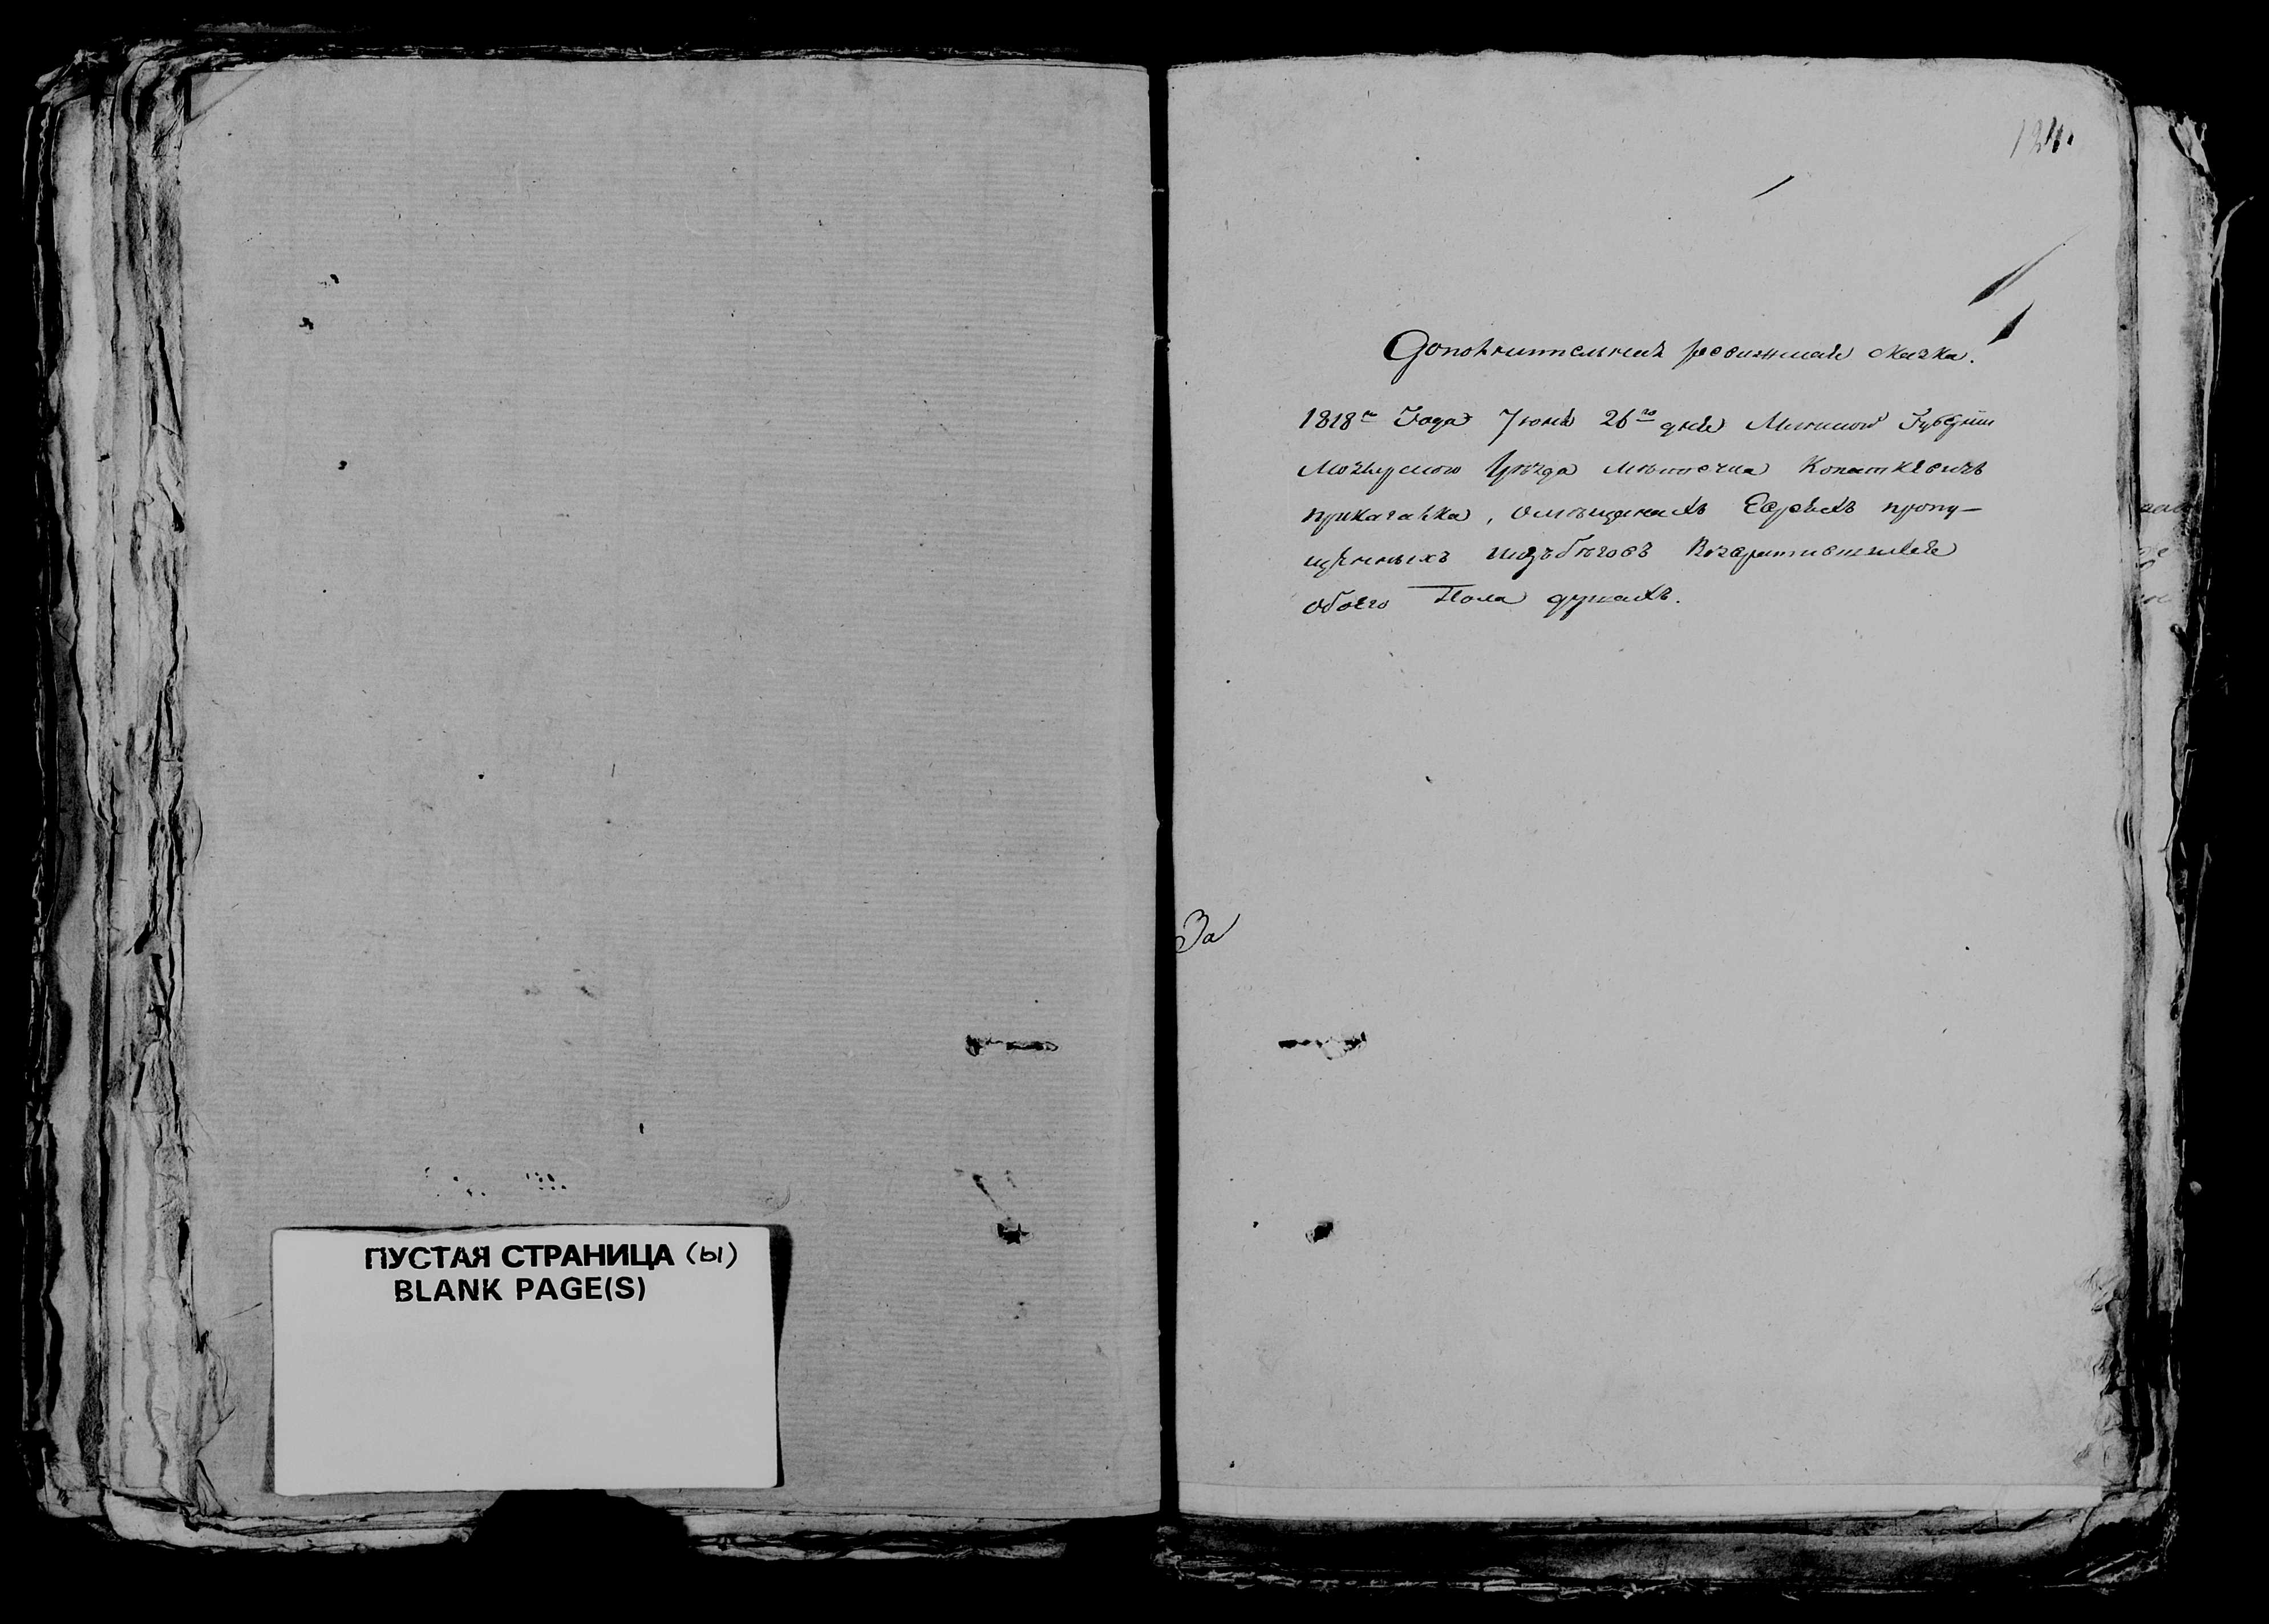 ПУСТАЯ СТРАНИЦА (ы)
BLANK PAGE(S)
124.
Дополнительная ревизская сказка.
1818го Года Июня 26го дня Минской Губернии
Мозырского уезда местечка Копаткевичь
прикагалка, о мещанахъ Евреяхъ пропу-
щенныхъ изъ беговъ Возвратившихся
обоего Пола душахъ.
За